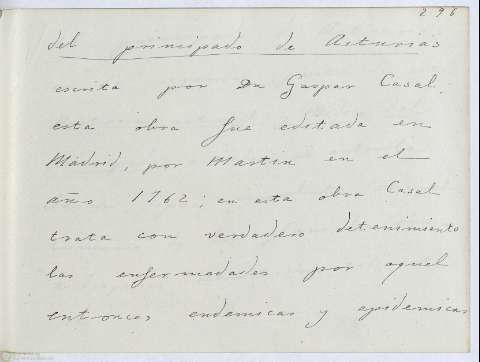 296
del principado de Asturias
escrita por Dn Gaspar Casal,
esta obra fué editada en
Madrid, por Martin en el
año 1762; en esta obra Casal
trata con verdadero detenimiento
las enfermadades por aquel
entonces endemicas y epidemicas